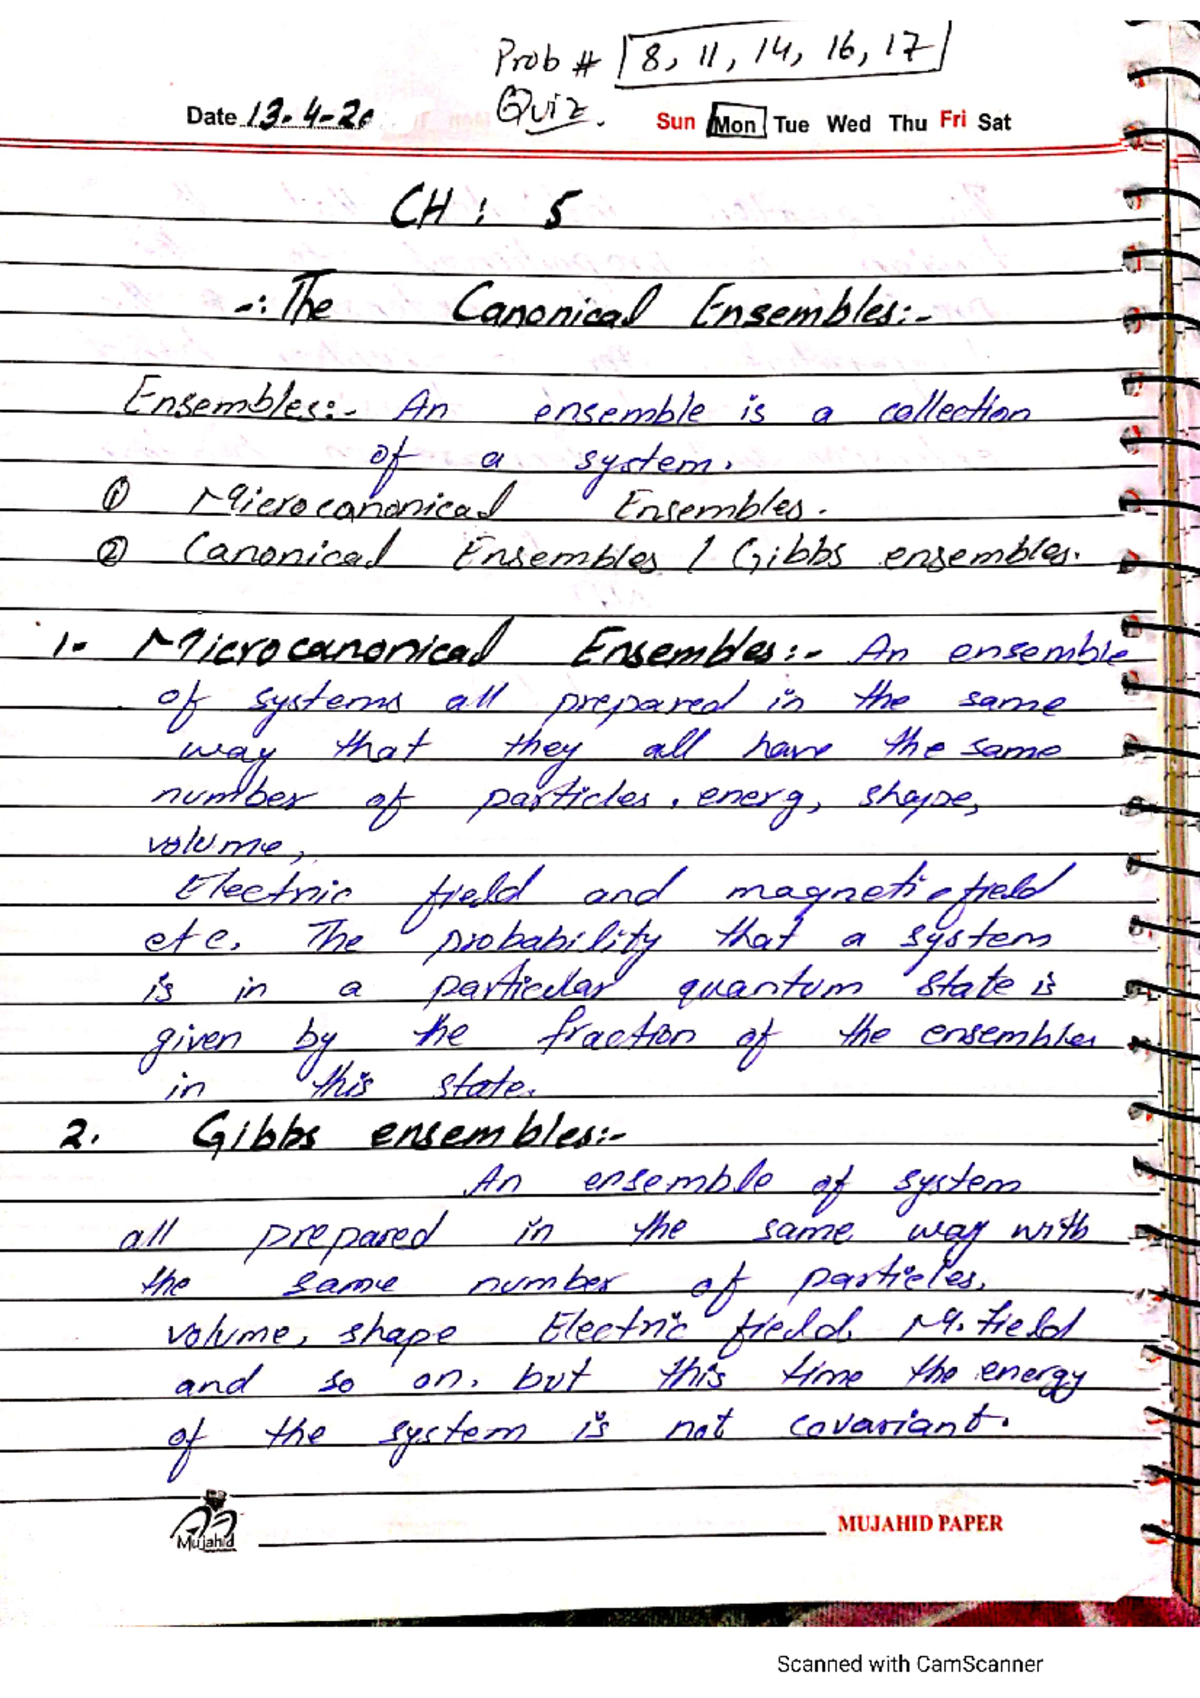 Prob # 8, 11, 14, 16, 17
Quiz.
Date 13-4-20 Sun Mon Tue Wed Thu Fri Sat
CH: 5
-:The Canonical Ensembles:-
Ensembles:- An ensemble is a collection
of a system.
① Microcanonical Ensembles.
② Canonical Ensembles / Gibbs ensembles.
1- Microcanonical Ensembles:- An ensemble
of systems all prepared in the same
way that they all have the same
number of particles, energ, shape,
volume,
Electric field and magnetic field
etc. The probability that a system
is in a particular quantum state is
given by the fraction of the ensembles
in this state.
2. Gibbs ensembles:-
An ensemble of system
all prepared in the same way with
the same number of particles,
volume, shape Electric field, M. field
and so on. but this time the energy
of the system is not covariant.
Mujahid
MUJAHID PAPER
Scanned with CamScanner